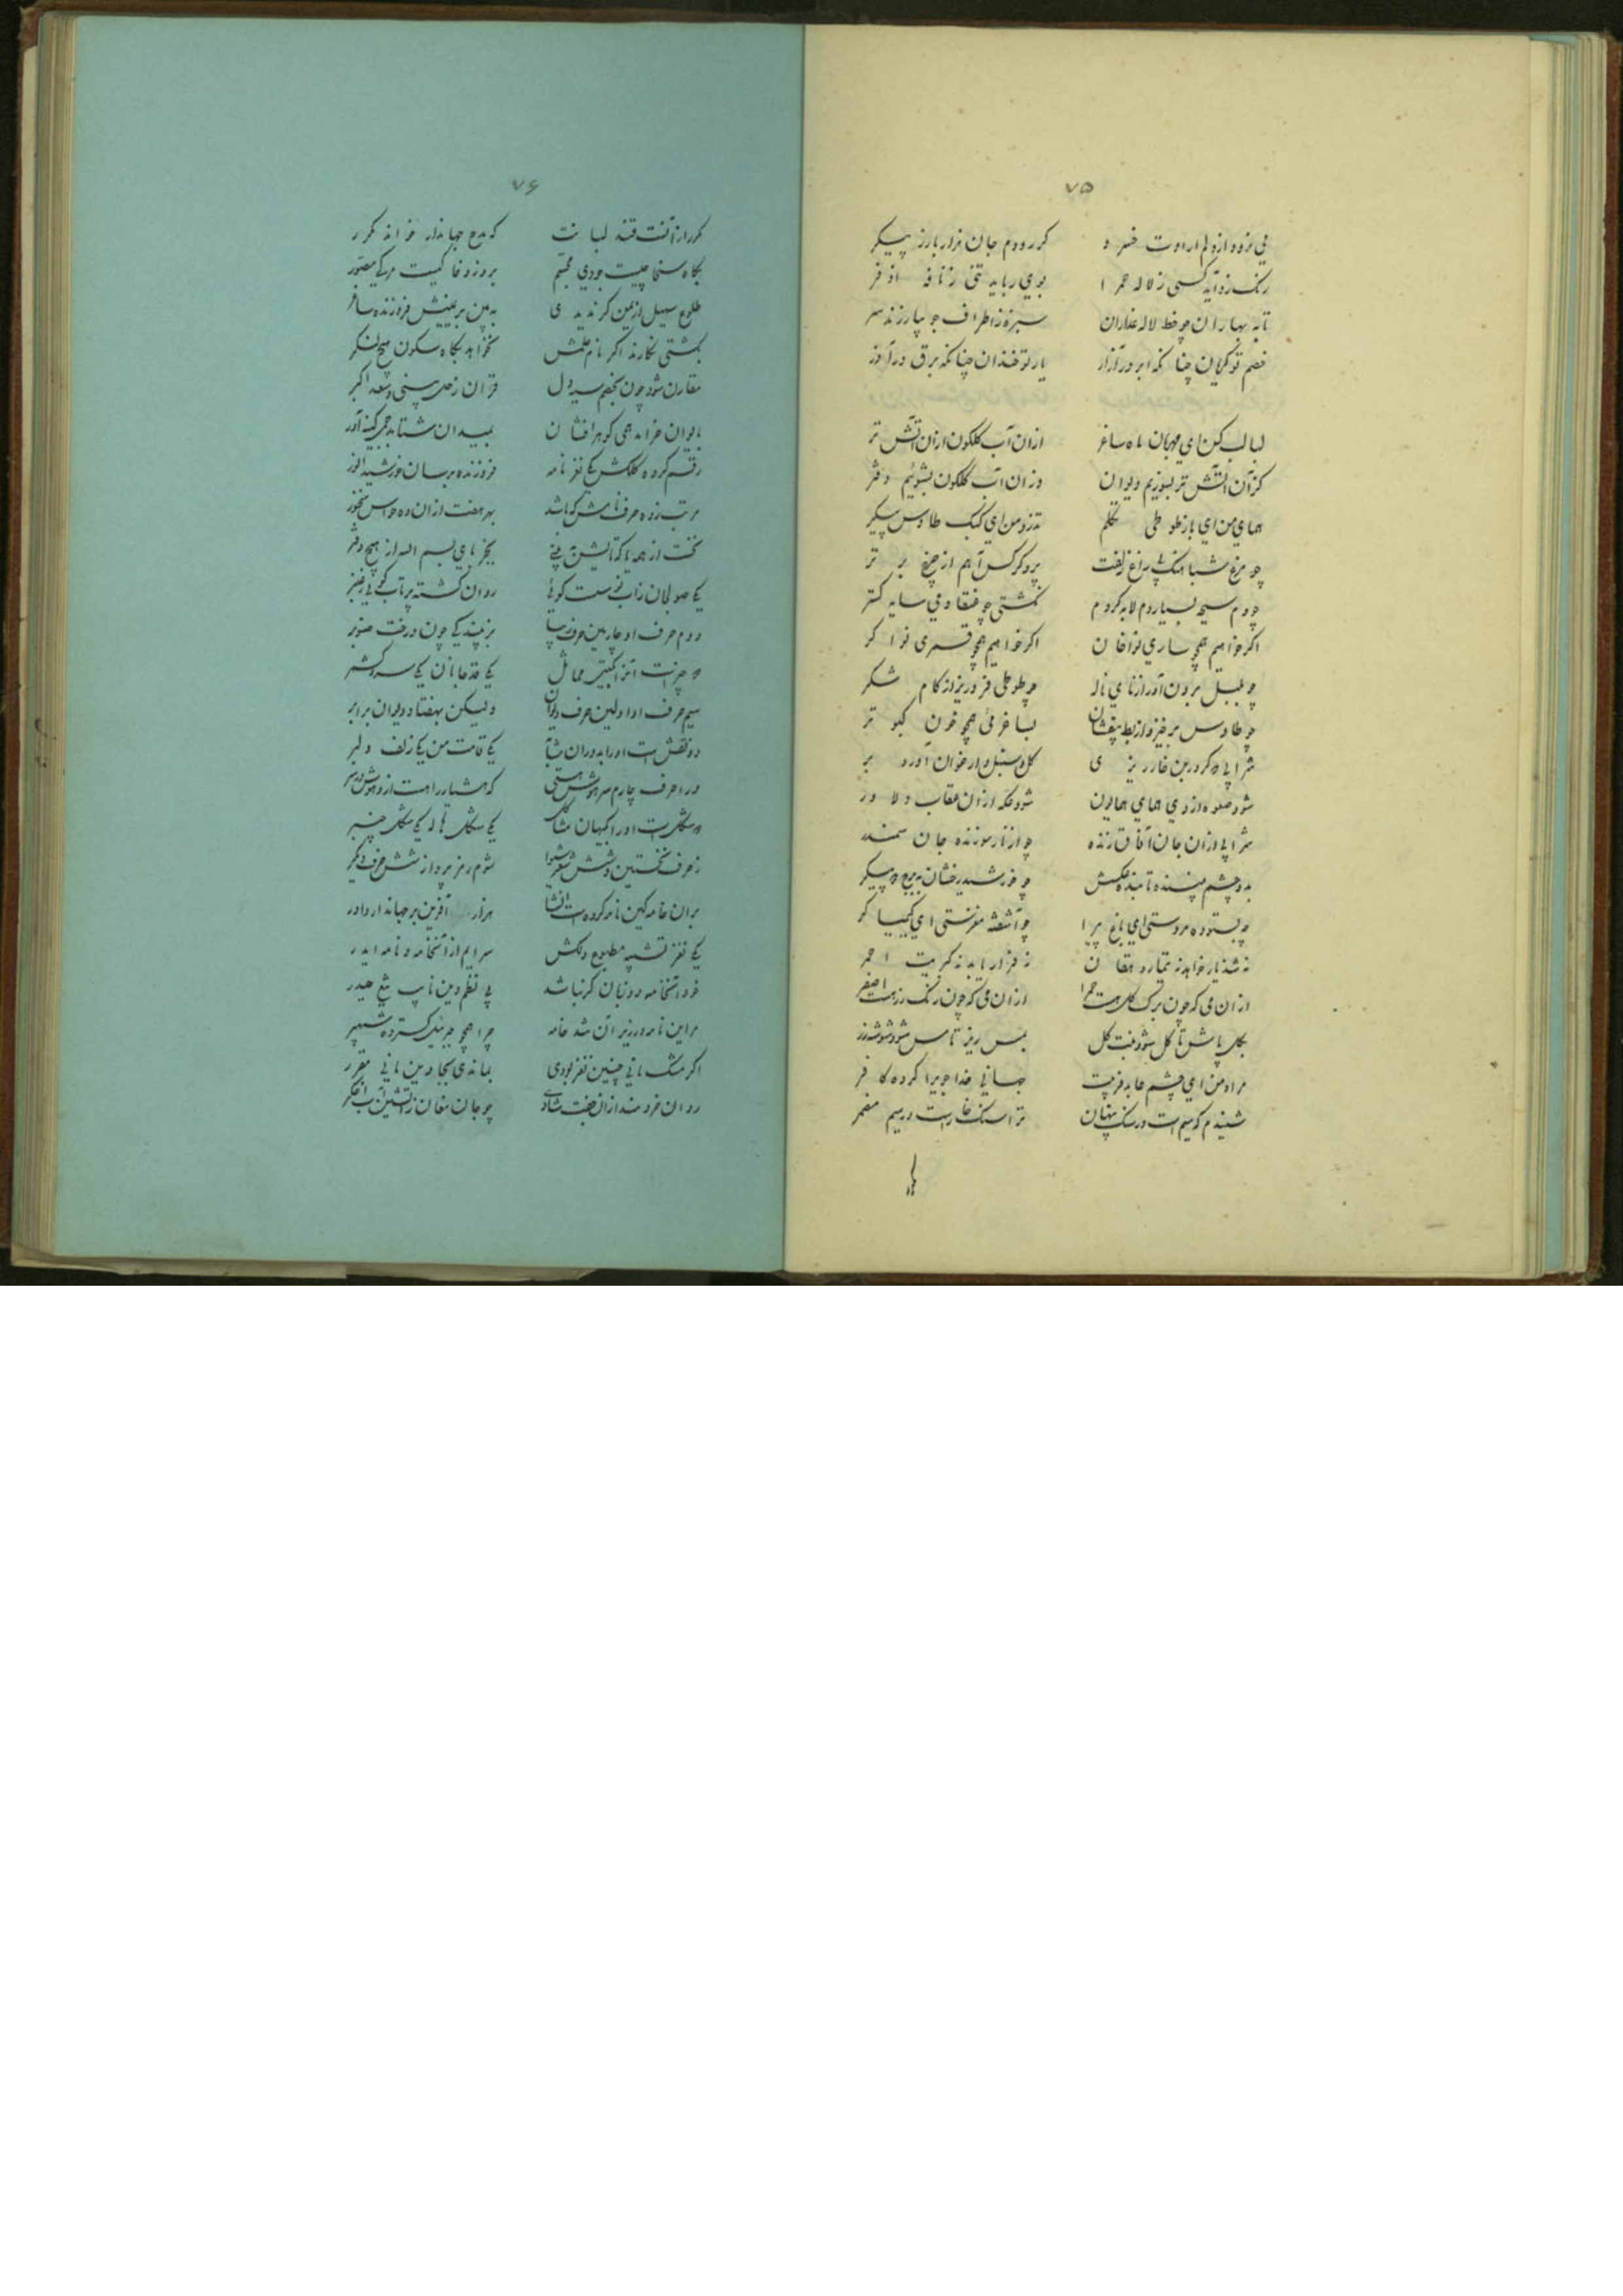 ۷۵
می نرود از دلم ارادت خسرو
کر رودم جان هزار بار ز پیکر
رنک زداید کسی ز لاله حمرا
بوی رباید تنی ز نافه اذفر
تا به بهاران چو خط لاله عذاران
سبزه ز اطراف جویبار زند سر
خصم تو کریان چنانکه ابر در آزار
یار تو خندان چنانکه برق در آذر
لبالب کن ای مهربان ماه ساغر
ازان آب کلکون ازان آتش تر
کزان آتش تر بسوزیم دیوان
وزان آب کلکون بشوئیم دفتر
همای من ای باز طوطی تکلم
تذرو من ای کبک طاوس پیکر
چو مرغ شباهنک زاغ زلفت
پرد کرکس آهم از چرخ برتر
چو دم سیحه بسیار دم لابه کردم
نکشتی چو عنقا دمی سایه کستر
اکر خواهیم همچو ساری نواخان
اکر خواهیم همچو قمری نواکر
چو بلبل برون آور از نای ناله
چو طوطی فرو ریز از کام شکر
چو طاوس برخیز و از بط بیفشان
بساغر می همچو خون کبوتر
شرابی که کر در بن خار ریزی
کل و سنبل و ارغوان آورد بر
شود صعوه از وی همای همایون
شود عکه ازان عقاب دلاور
شرابی ازان جان آفاق زنده
چو از نار سوزنده جان سمندر
بدو چشم بیننده تابنده عکسش
چو خورشید رخشان ببرج دو پیکر
چو بستوده مردستی ای باغ پیرا
چو آشفته مغزستی ای کیمیاکر
نه شنیار خواهد نه تیمار دهقان
نه فرار باید نه کبریت احمر
ازان می که چون برک کل هست حمرا
ازان می که چون رنک زر هست اصفر
بکل پاش تا کل شود نبت کل
بمس ریز تا مس شود شوشه زر
مراد من ای چشم عابد فریبت
جهانی خداجوی را کرده کافر
شنیدم که سیم است در سنک پنهان
ترا سنک خاراست در سیم مضمر
۷۶
مکرر از آنست قند لبانت
که مدح جهاندار خواند مکرر
بکاه سخا چیست جودی مجسم
بروز وغا کیست مرکی مصور
طلوع سهیل از یمن کر ندیدی
به بین بر یمینش فروزنده ساغر
بکشتی نکارند اکر نام حلمش
نخواهد بکاه سکون هیچ لنکر
مقارن شود چون بخصم سیه دل
قران زحل بینی و سعد اکبر
بایوان خرامد همی کوهر افشان
بمیدان شتابد همی کینه آور
رقم کرده کلکش یکی نغز نامه
فروزنده برسان خورشید انور
بهر هفت ازان ده حواس سخنور
نخست از همه با که تایش
بجز بای بسم الله از هیچ دفتر
یکی صولجان
دوم حرف او
یکی چون درخت صنوبر
یکی قد جانان یکی سرو کشمر
سیم حرف او اولین حرف دیوان
ولیکن بهفتاد دیوان برابر
دو نقش است او را بدوران
یکی قامت من یکی زلف دلبر
ورا حرف چارم سر هوش هستی
که هشیار را هست از و هوش در سر
دو شکل است او را بکیهان مشاکل
یکی شکل هاله یکی شکل چنبر
ز حرف نخستین و شش شعر شیوا
شوم رمز پرداز شش حرف دیکر
بران خامه کین نامه کرده است انشا
هزار آفرین بر جهاندار داور
یکی نغز تشبیه مطبوع دلکش
سرایم ازآنخامه و نامه ایدر
خود آنخامه دو زبان کر نباشد
پی نظم دین نایب تیغ حیدر
بر این نامه در زیر آن شد خامه
چرا همچو جبریل کسترده شهپر
اکر مشک مانی چنین نغز بودی
بماندی بجا دین مانی مقرر
روان خردمند ازان جفت شادی
چو جان مغان ز آتشین آب اخکر